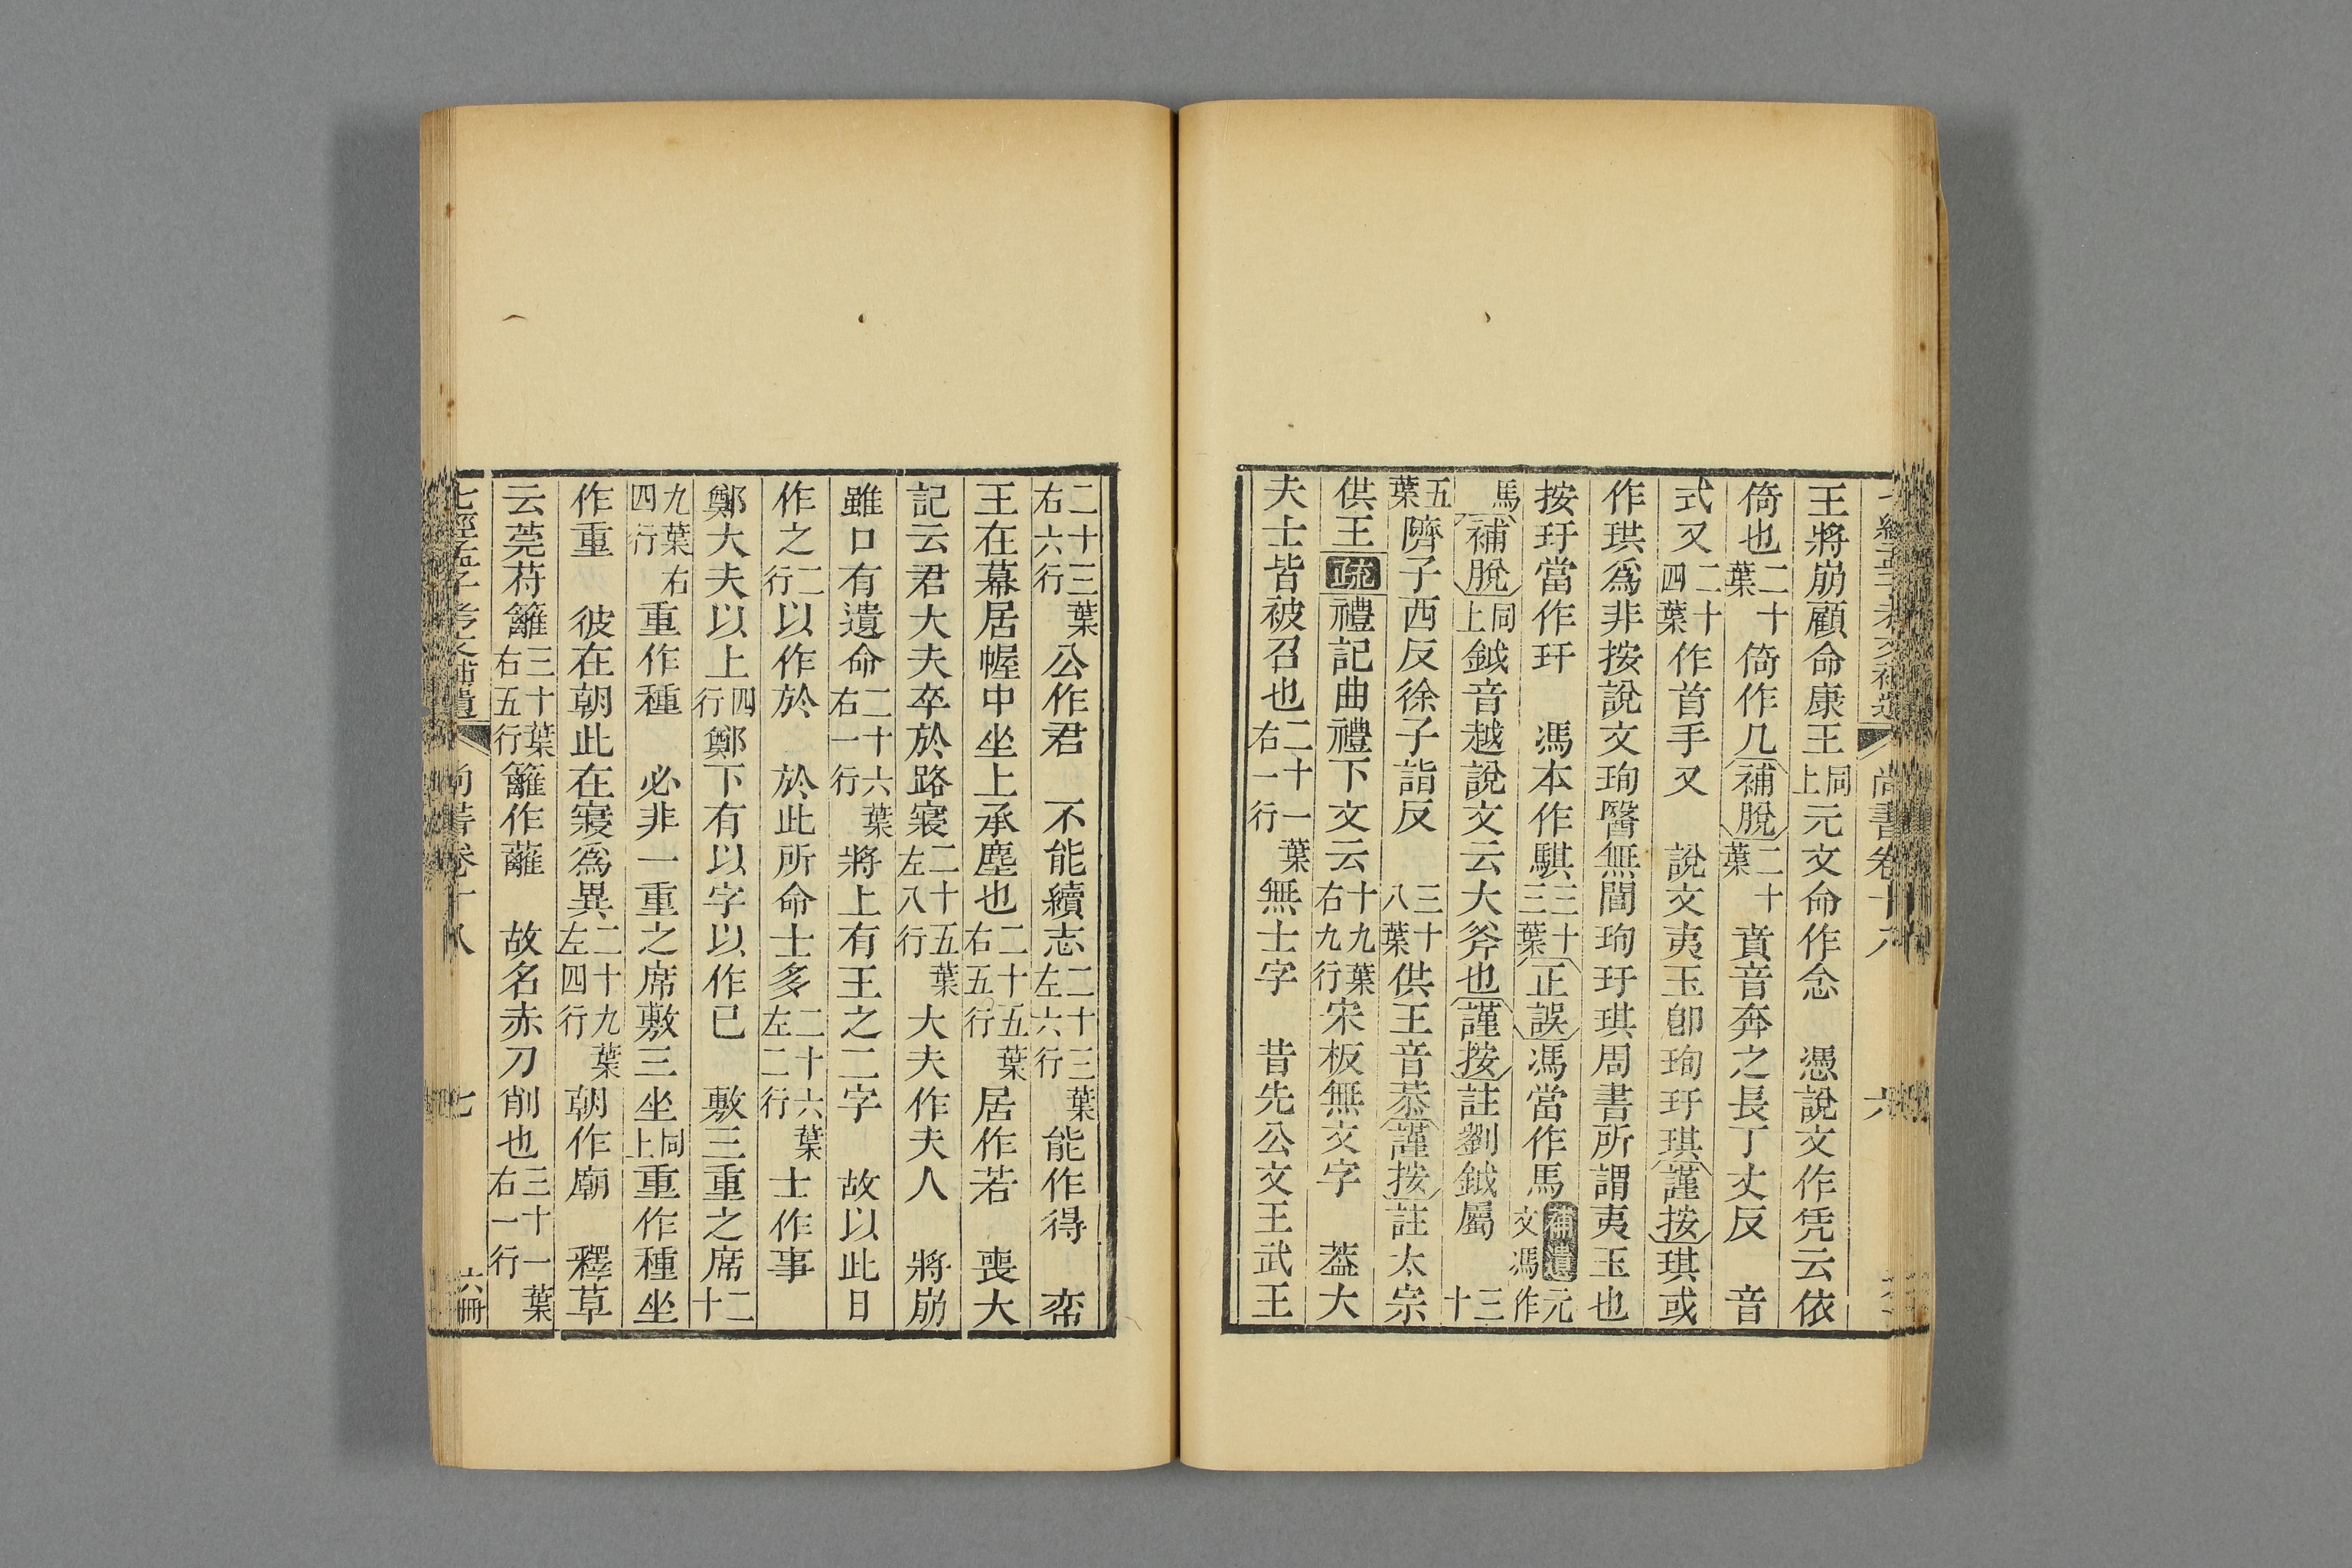 七經孟子考文補遺 尚書卷十八 六
王將崩顧命康王同上元文命作念 憑說文作凭云依
倚也二十葉倚作几補脫二十葉賁音奔之長丁丈反 音
式又二十四葉作首手又 說文夷玉卽珣玗琪謹按琪或
作珙爲非按說文珣醫無閭珣玗琪周書所謂夷玉也
按玗當作玕 馮本作騏三十三葉正誤馮當作馬補遺元文馮作
馬補脫同上鉞音越說文云大斧也謹按註劉鉞屬 三十
五葉隮子西反徐子詣反 三十八葉供王音恭謹按註太宗
供王疏禮記曲禮下文云十九葉右九行宋板無文字 葢大
夫士皆被召也二十一葉右一行無士字 昔先公文王武王
二十三葉右六行公作君 不能續志二十三葉左六行能作得 帟
王在幕居幄中坐上承塵也二十五葉右五行居作若 喪大
記云君大夫卒於路寢二十五葉左八行大夫作夫人 將崩
雖口有遺命二十六葉右一行將上有王之二字 故以此日
作之二行以作於 於此所命士多二十六葉左二行士作事
鄭大夫以上四行鄭下有以字以作已 敷三重之席二十
九葉右四行重作種 必非一重之席敷三坐同上重作種坐
作重 彼在朝此在寢爲異二十九葉左四行朝作廟 釋草
云莞苻籬三十葉右五行籬作蘺 故名赤刀削也三十一葉右一行
七經孟子考文補遺 尚書卷十八 七 六冊